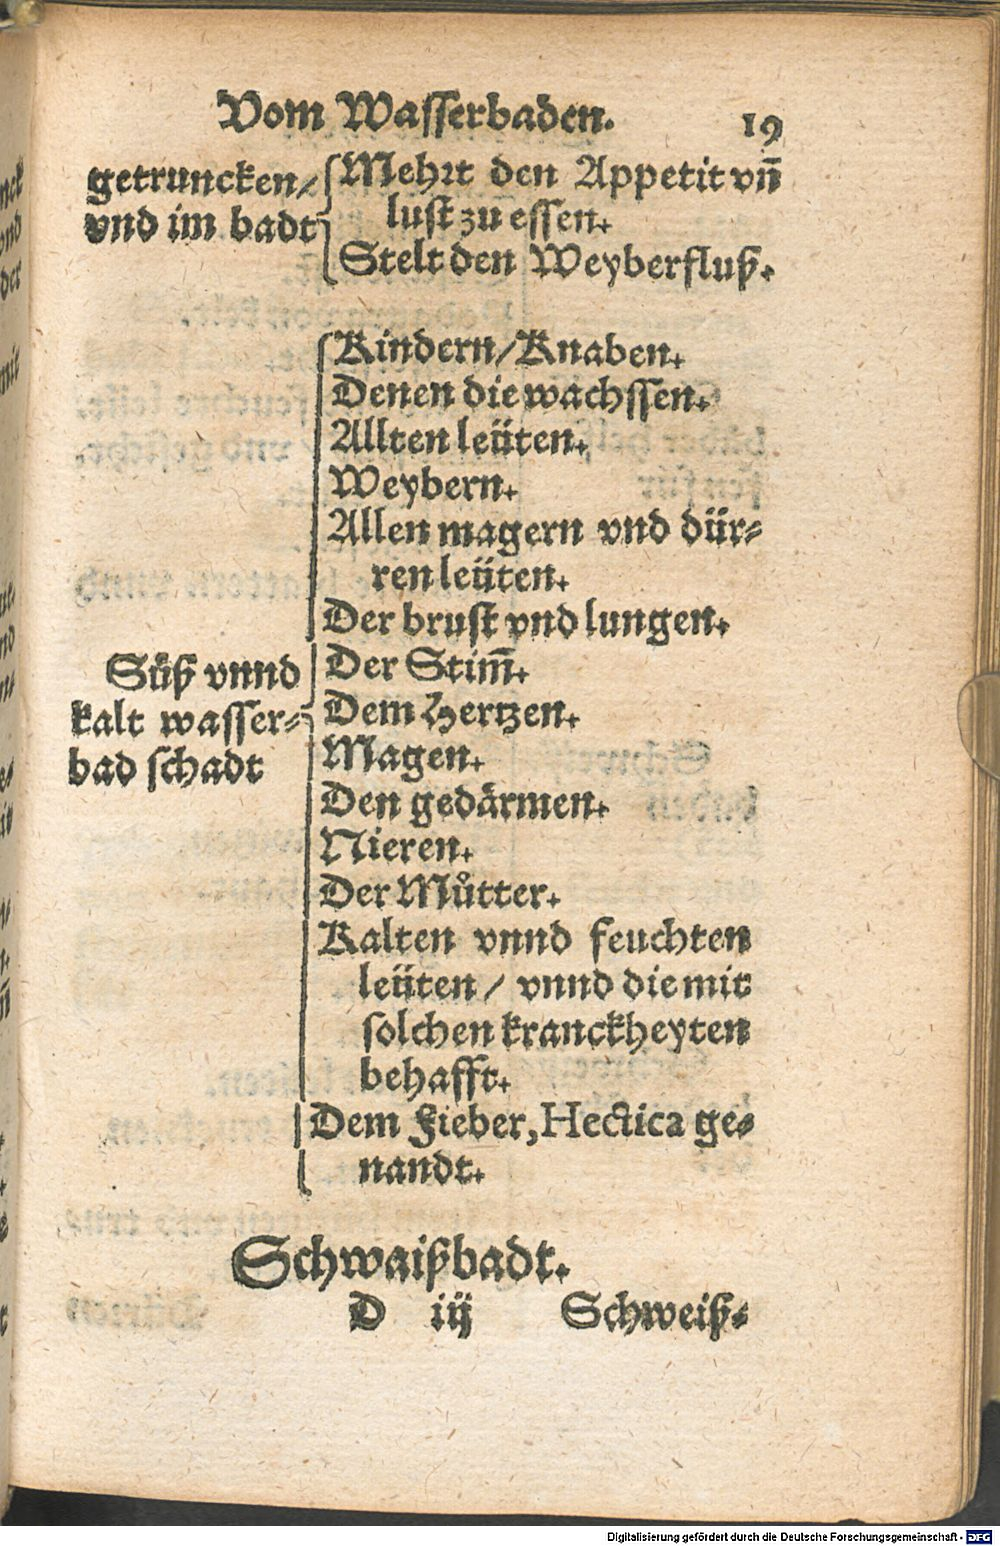 Vom Wasserbaden. 19
getruncken/
vnd im badt
Mehrt den Appetit vn̄
lust zu essen.
Stelt den Weyberfluß.
Kindern/Knaben.
Denen die wachssen.
Allten leüten.
Weybern.
Allen magern vnd dür-
ren leüten.
Der brust vnd lungen.
Süß vnnd
kalt wasser-
bad schadt
Der Stim̄.
Dem Hertzen.
Magen.
Den gedärmen.
Nieren.
Der Můtter.
Kalten vnnd feuchten
leüten / vnnd die mit
solchen kranckheyten
behafft.
Dem Fieber, Hectica ge-
nandt.
Schwaißbadt.
D iij Schweiß-
Digitalisierung gefördert durch die Deutsche Forschungsgemeinschaft - DFG